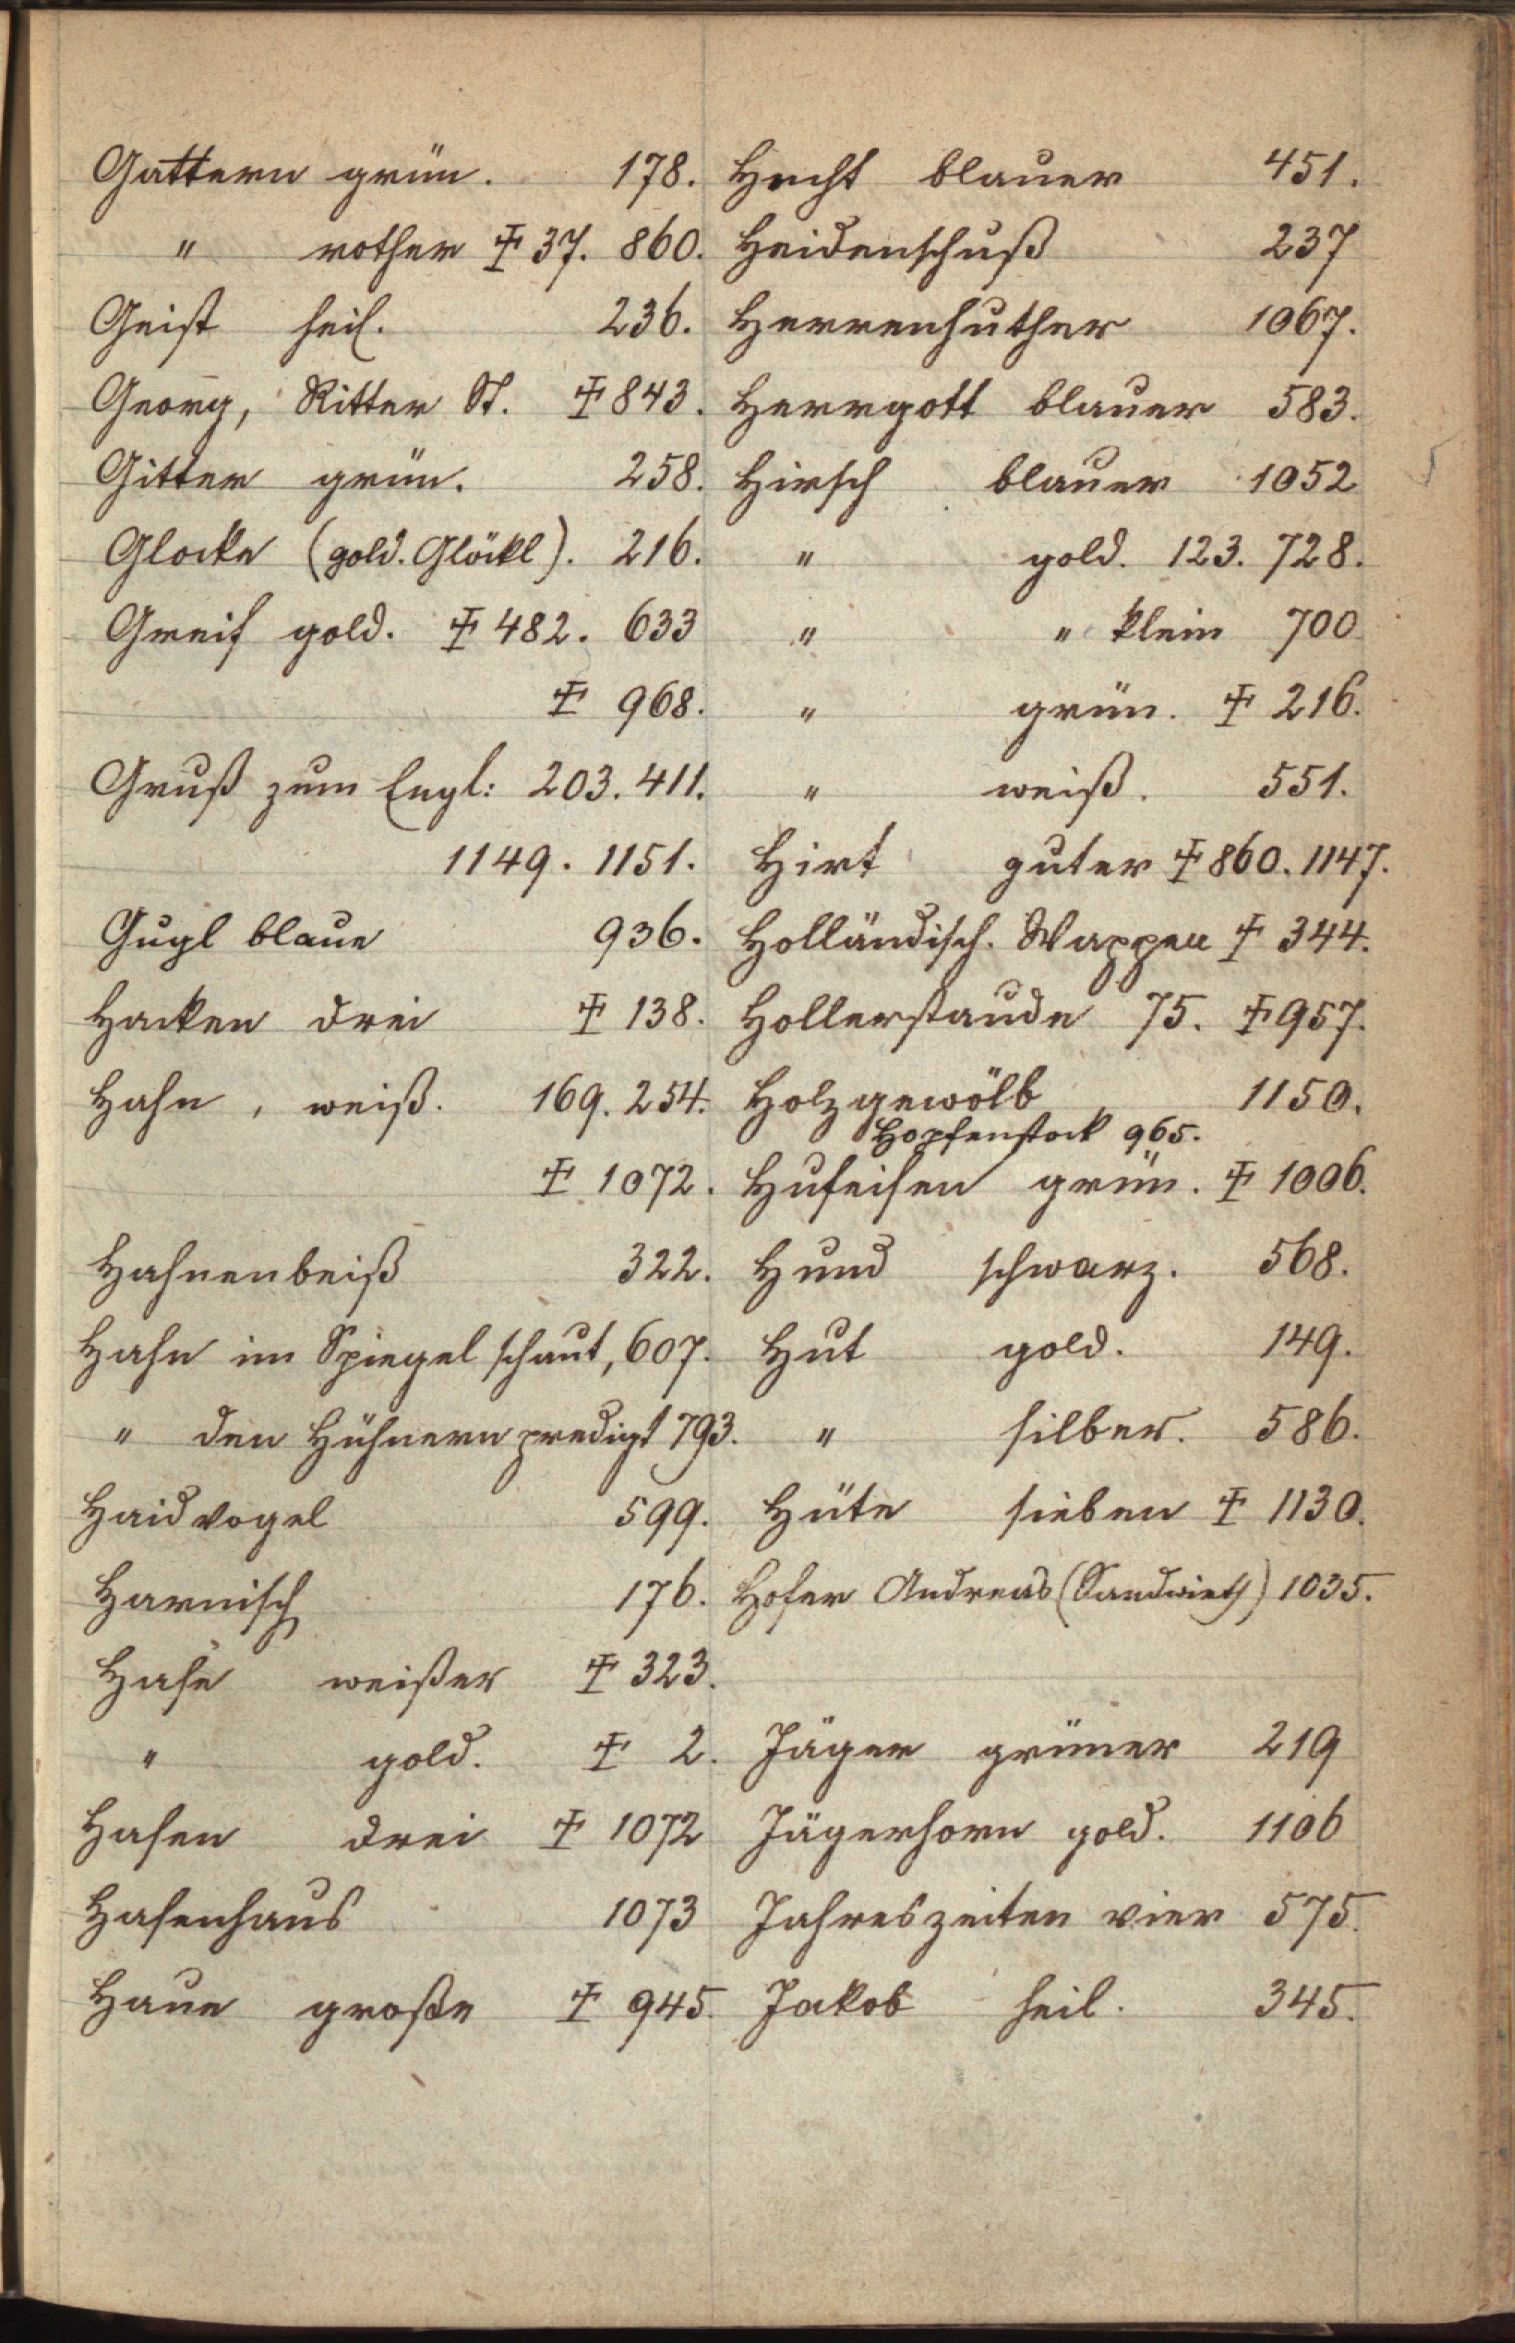 Gattern grün. 178.
" rother ‡ 37. 860.
Geist heil. 236.
Georg, Ritter St. ‡ 843.
Gitter grün. 258.
Glocke (gold. Glöckl). 216.
Greif gold. ‡ 482. 633
‡ 968.
Gruß zum Engl: 203. 411.
1149. 1151.
Gugl blaue 936.
Hacken drei ‡ 138.
Hahn, weiß. 169. 254.
‡ 1072.
Hahnenbeiß 322.
Hahn im Spiegel schaut, 607.
" den Hühnern predigt 793.
Haidvogel 599.
Harnisch 176.
Hase weißer ‡ 323.
" gold. ‡ 2.
Hasen drei ‡ 1072
Hasenhaus 1073
Haue große ‡ 945.
Hecht blauer 451.
Heidenschuß 237
Herrenhuther 1067.
Herrgott blauer 583.
Hirsch blauer 1052
" gold. 123. 728.
" " klein 700
" grün. ‡ 216.
" weiß. 551.
Hirt guter ‡ 860. 1147.
Holländisch. Wappen ‡ 344.
Hollerstaude 75. ‡ 957.
Holzgewölb 1150.
Hopfenstock 965.
Hufeisen grün. ‡ 1006.
Hund schwarz. 568.
Hut gold. 149.
" silber. 586.
Hüte sieben ‡ 1130.
Hofer Andreas (Sandwirth) 1035.
Jäger grüner 219
Jägerhorn gold. 1106
Jahreszeiten vier 575.
Jakob heil. 345.